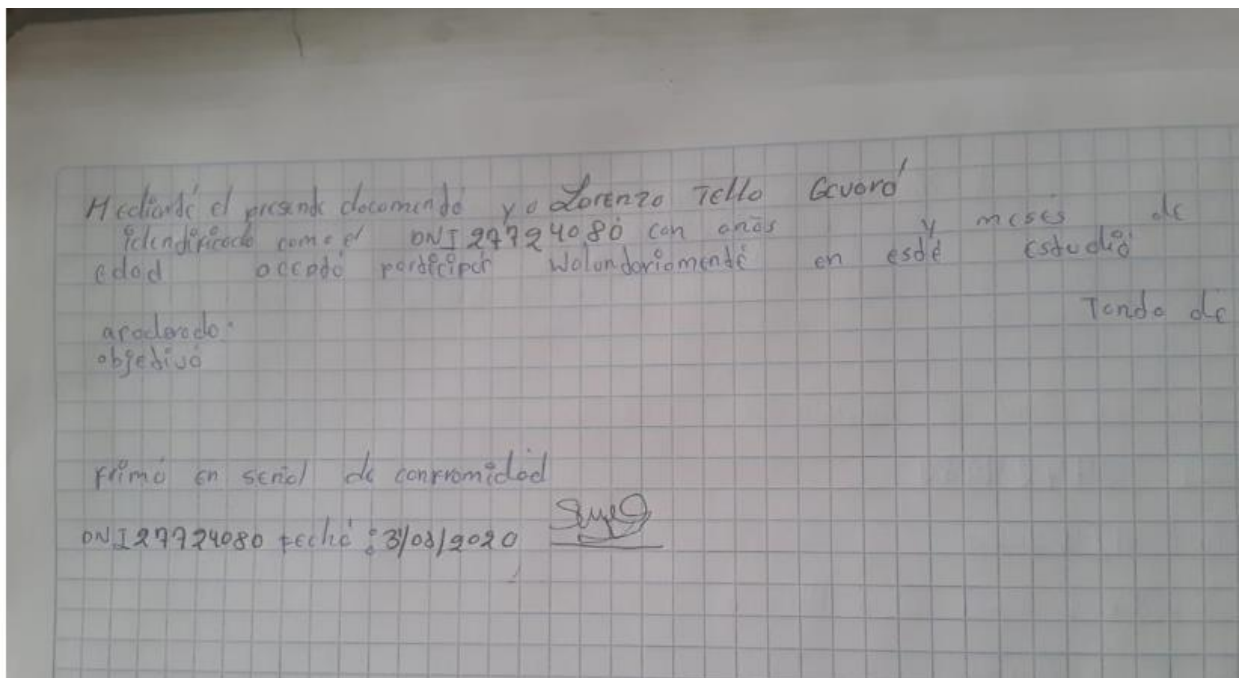 Mediande el presende documendo yo Lorenzo Tello Guvara
idendificado como el DNI 27724080 con años y meses de
edad accedo pardicipar wolundariamende en esde estudio
Tendo de
apoderado:
objedivo
frimo en señal de confromidad
DNI 27724080 fecha : 3/08/2020